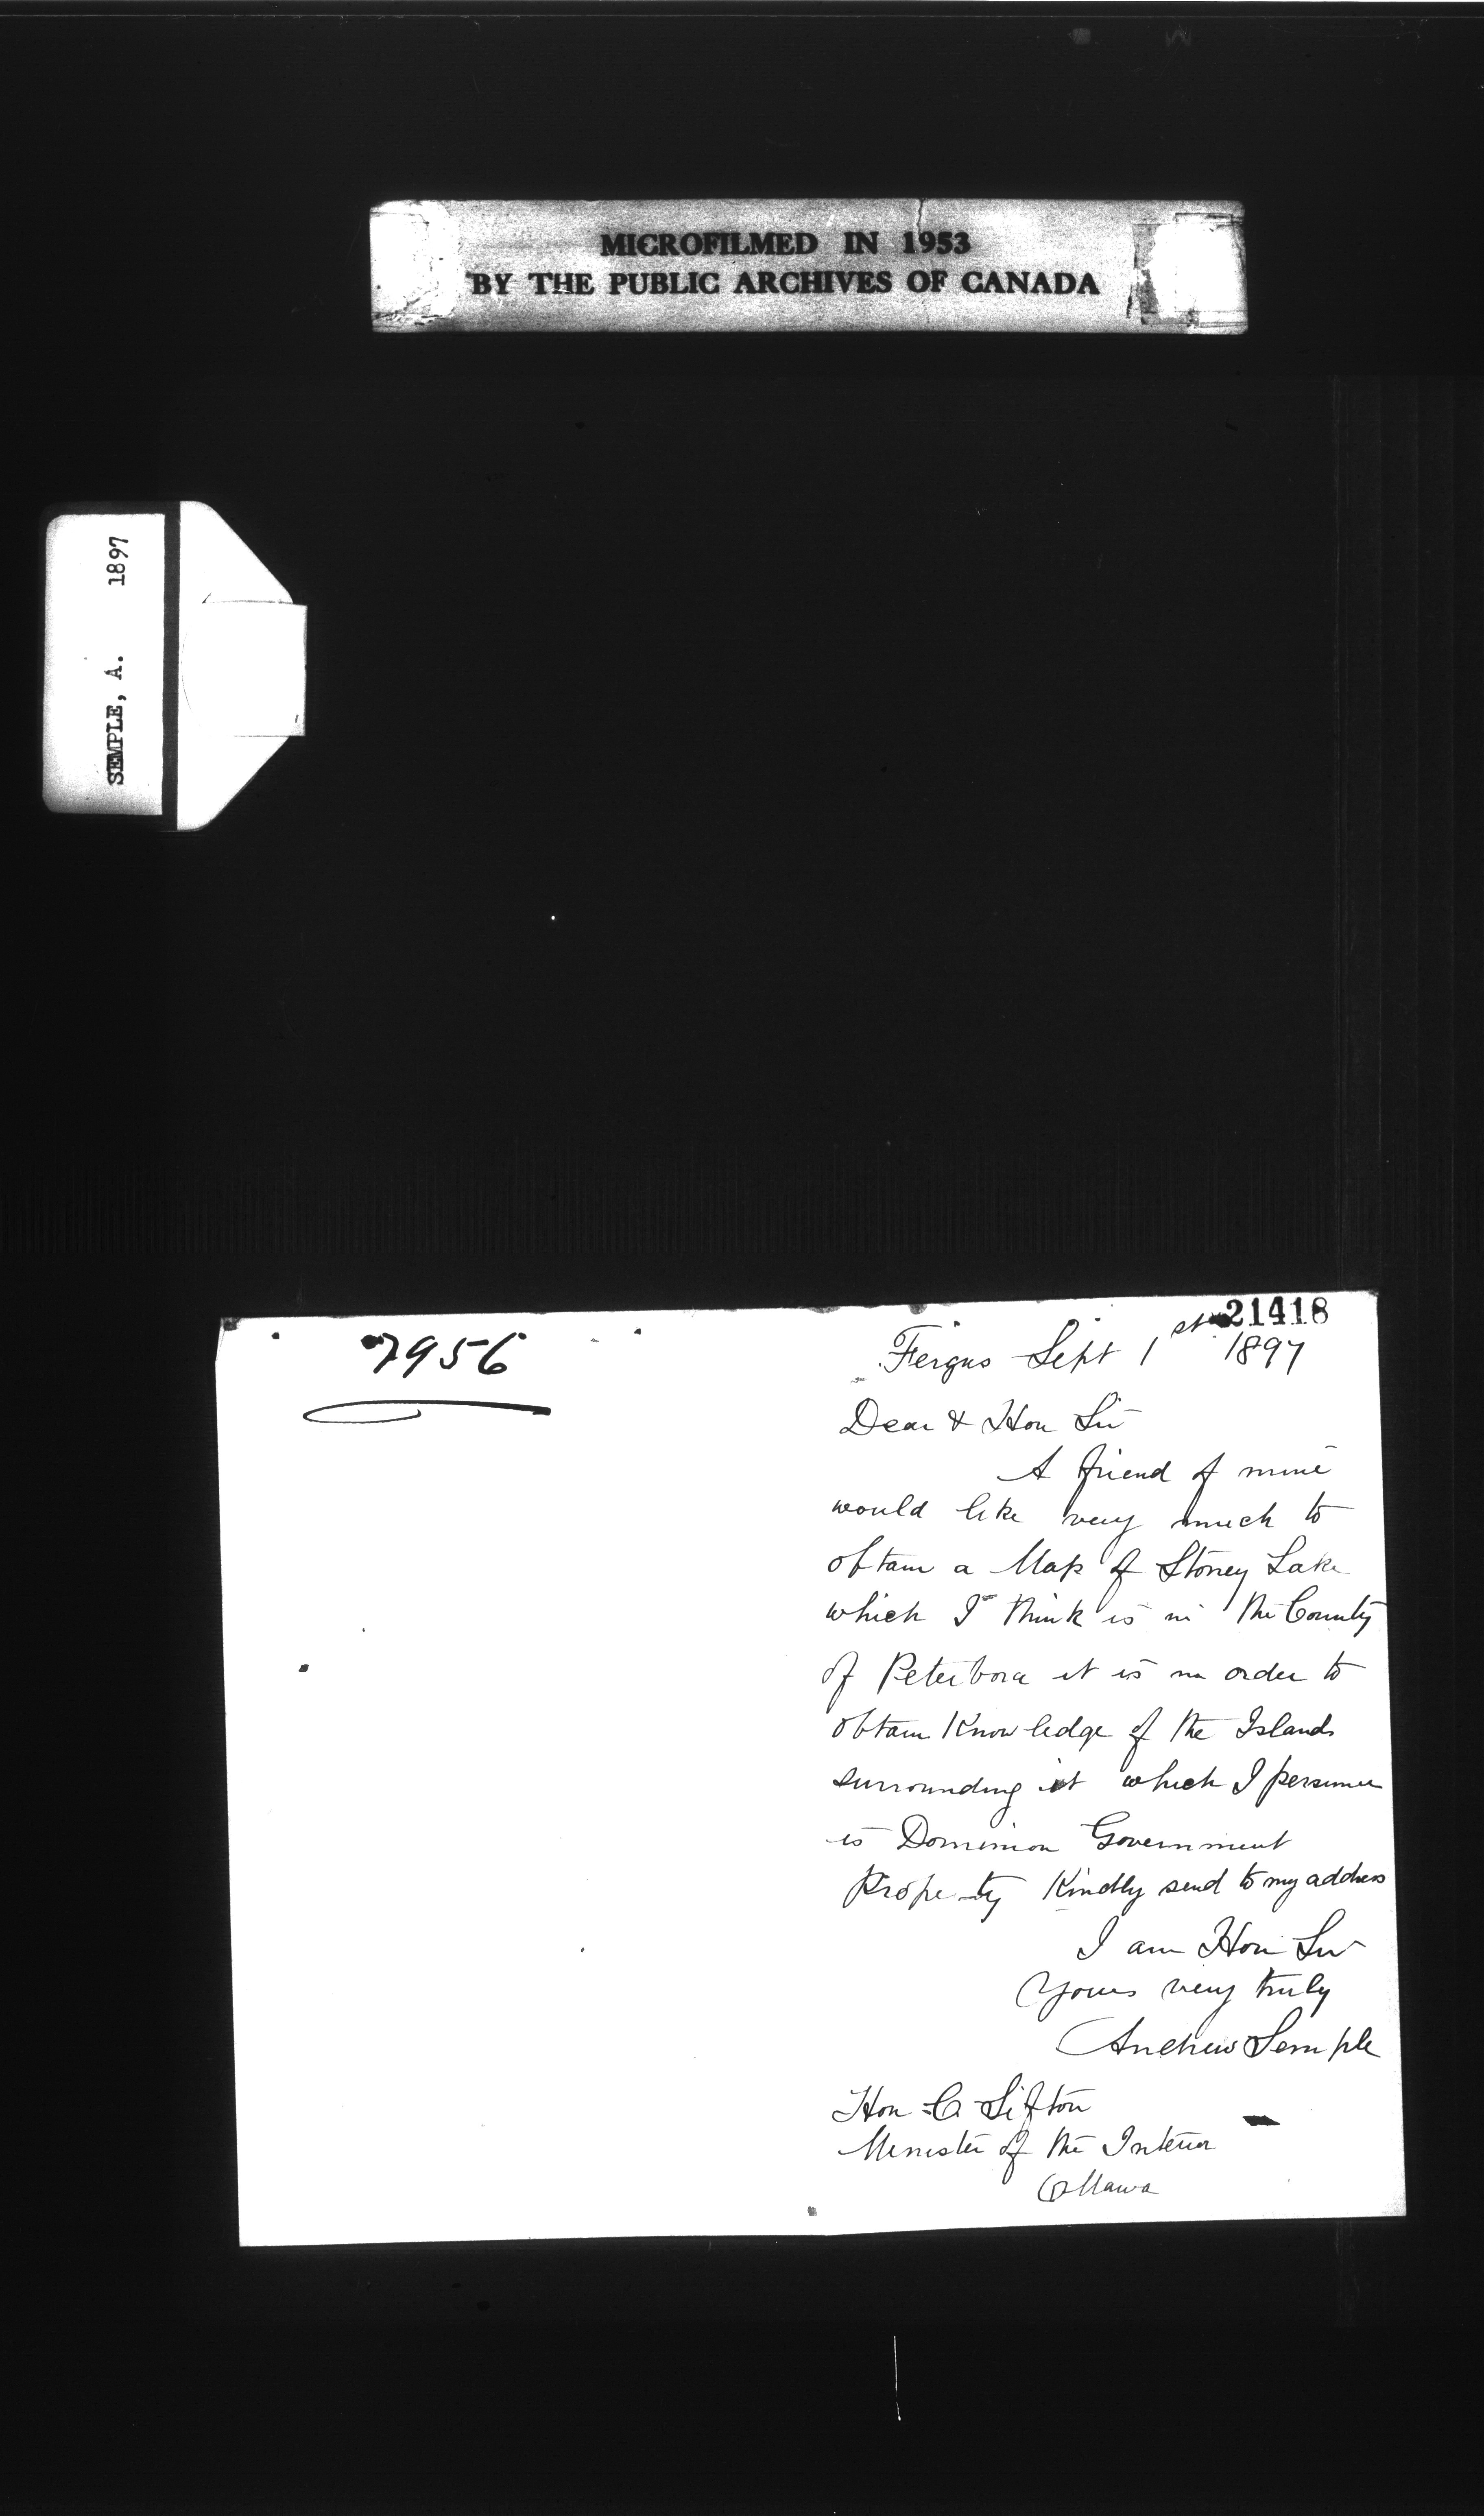 MICROFILMED IN 1953
BY THE PUBLIC ARCHIVES OF CANADA
SEMPLE, A. 1897
7956
21418
Fergus Sept 1st 1897
Dear & Hon Sir
A friend of mine
would like very much to
obtain a Map of Stoney Lake
which I think is in the County
of Peterboro it is in order to
obtain Knowledge of the Islands
surrounding it which I persume
is Dominion Government
Property Kindly send to my address
I am Hon Sir
Yours very truly
Andrew Semple
Hon C Sifton
Minister of the Interior
Ottawa